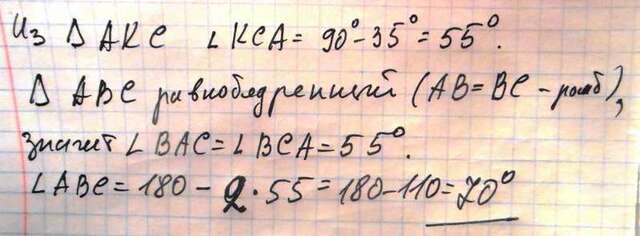 Из Δ AKC ∠KCA = 90°-35° = 55°.
Δ ABC равнобедренный (AB=BC - ромб),
значит ∠BAC = ∠BCA = 55°.
∠ABC = 180 - 2·55 = 180-110 = 70°